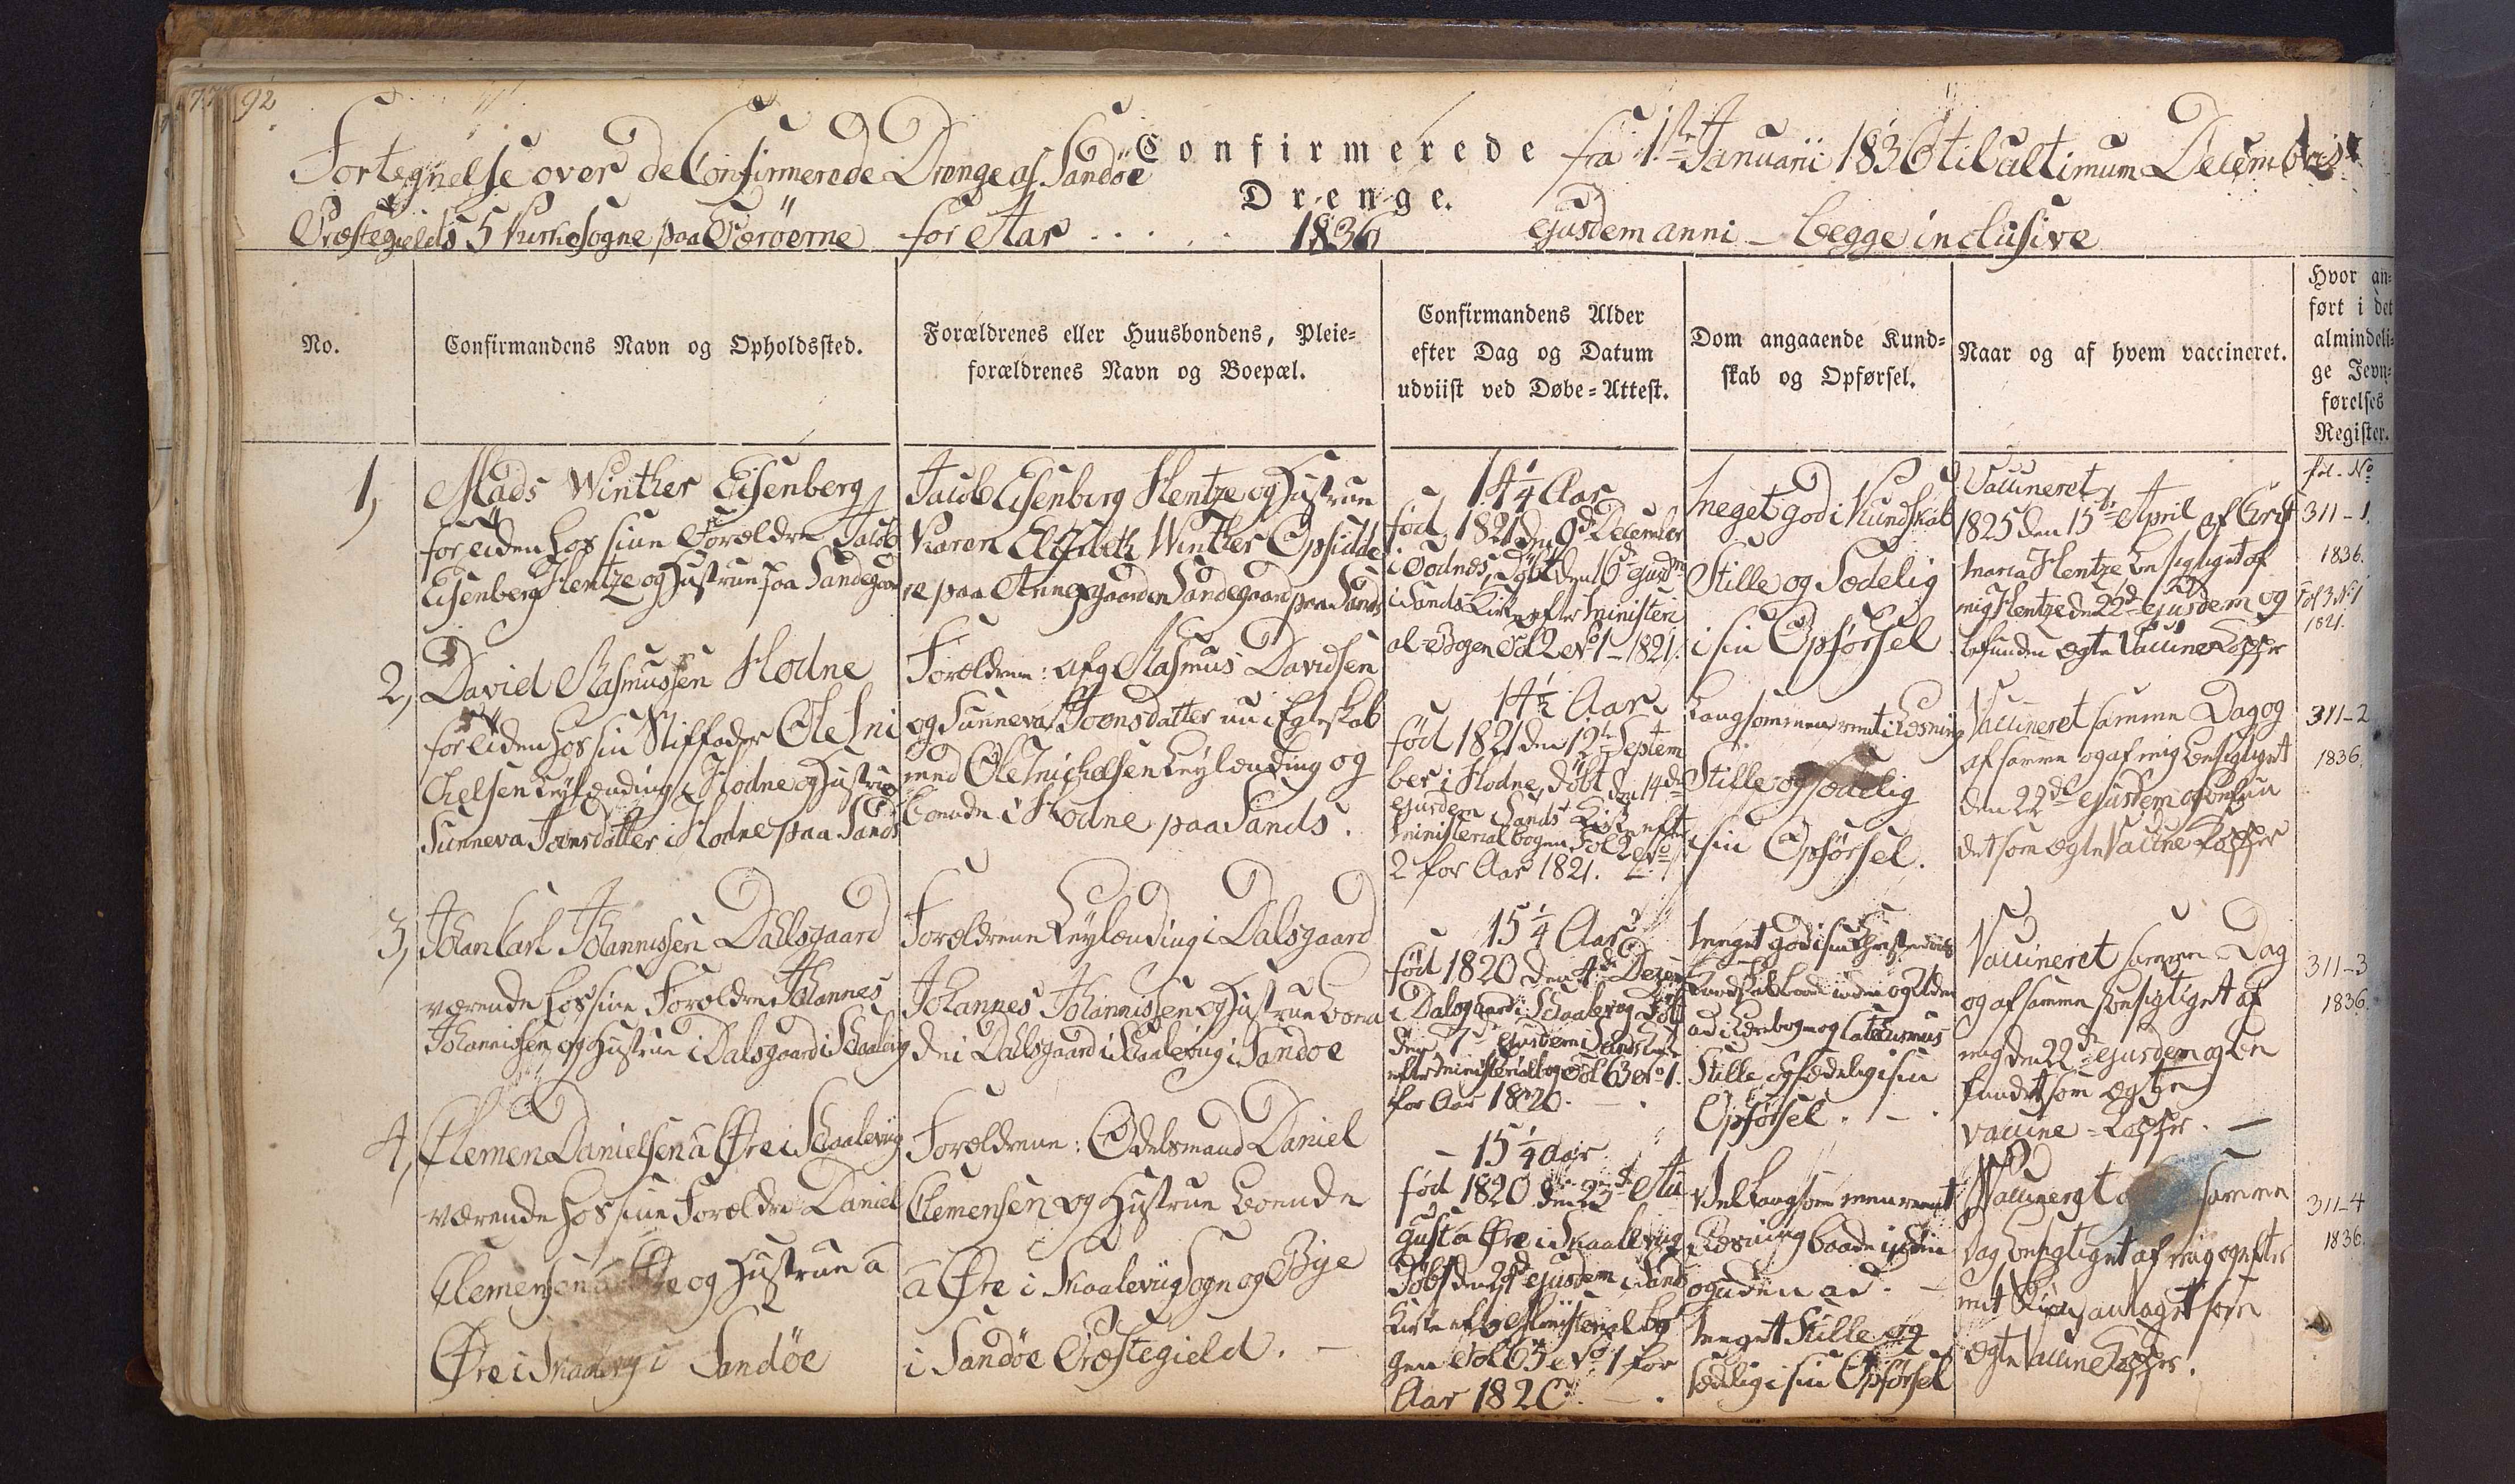 92
Confirmerede fra 1ste Januarii 1836 til ultimum Decembris
Fortegnelse over de Confirmerede Drenge af Sandöe
Drenge.
Præstegields 5 Kirke Sogne paa Færöerne for Aar . . . . . 1836 ejusdem anni – begge inclusive
No.
Confirmandens Navn og Opholdssted.
Forældrenes eller Huusbondens, Pleie=
forældrenes Navn og Boepæl.
Confirmandens Alder
efter Dag og Datum
udviist ved Døbe=Attest.
Dom angaaende Kund=
skab og Opførsel.
Naar og af hvem vaccineret.
Hvor an=
ført i det
almindeli=
ge Jevn=
førelses
Register.
1,
Mads Winther Eisenberg
for tiden hos sine Forældre Jacob
Eisenberg Hentze og Hustrue paa Sandegaar
Jacob Eisenberg Hentze og Hustrue
Karen Elisabeth Winther Opsidde
re paa Annexgaarden Sandegaard paa Sands
14 1/4 Aar
fød 1821 den 6te December
i Todnes, Døbt den 16d ejusdm
i Sands Kirke efter Ministeri
al-Bogen Fol 2 No 1 – 1821.
Meget god i Kundskab
Stille og Sædelig
i sin Opførsel
Vaccineret
1825 den 15de April af Chrst
Maria Hentze besigtiget af
mig Hentze den 22d ejusdem og
befunden ægte Vaccine Kopper
fol. No
311 – 1.
1836.
Fol 3 No 1
1821.
2,
David Rasmussen Hodne
for tiden hos sin Stiffader Ole Mi
chelsen Leylænding i Hodne og Hustrue
Sunneva Joensdatter i Hodne paa Sands
Forældrene: afg Rasmus Davidsen
og Sunneva Joensdatter nu i Egteskab
med Ole Michelsen Leylænding og
boende i Hodne paa Sands.
14 1/2 Aar
fød 1821 den 12te Septem
ber i Hodne, døbt den 14de
ejusdem i Sands Kirke efter
Ministerialbogen Fol 2 No
2 for Aar 1821.
Langsom men rent i Læsning
Stille og sædelig
i sin Opførsel.
Vaccineret samme Dag og
af samme og af mig besigtiget
den 22de ejusdem og befun
det som ægte Vaccine Kopper
311 – 2
1836.
3,
Johan Carl Johannissen Dahlsgaard
værende hos sine Forældre Johannes
Johannissen og Hustrue i Dalsgaard i Skaalevig
Forældrene Leylænding i Dalsgaard
Johannes Johannissen og Hustrue boen
de i Dahlsgaard i Skaalevig i Sandoe
15 1/4 Aar
fød 1820 den 4de Decem
i Dalsgaard i Skaalevig Døbt
den 7d ejusdem i Sands Kirke
efter Ministerialbogen Fol 63 No 1.
for Aar 1820.
Meget god i sin Christendoms
Kundskab baade inden og uden
ad i Lærebogen og Catekismus
Stille og sædelig i sin
Opførsel.
Vaccineret samme Dag
og af samme besigtiget af
mig den 22de ejusdem og be
fundet som ægte
Vaccine=Kopper. –
311 – 3
1836.
4,
Clemen Danielsen á Øre i Skaalevig
værende hos sine Forældre Daniel
Clemensen á Øre og Hustrue á
Øre i Skaalevig i Sandöe
Forældrene: Odelsmand Daniel
Clemensen og Hustrue boende
á Øre i Skaalevig Sogn og Bye
i Sandöe Præstegield. –
15 1/4 Aar
fød 1820 den 23d Au
gust á Øre i Skaalevig
Døbt den 29d ejusdem i Sands
Kirke efter Ministerialbo
gen Fol 63 No 1 for
Aar 1820.
Vel langsom men rent
Læsning baade inden
og uden ad. –
Meget Stille og
sædelig i sin Opførsel
Vaccineret samme
Dag besigtiget af mig og efter
mit Skjøn antaget som
ægte Vaccine Kopper.
311 – 4
1836.